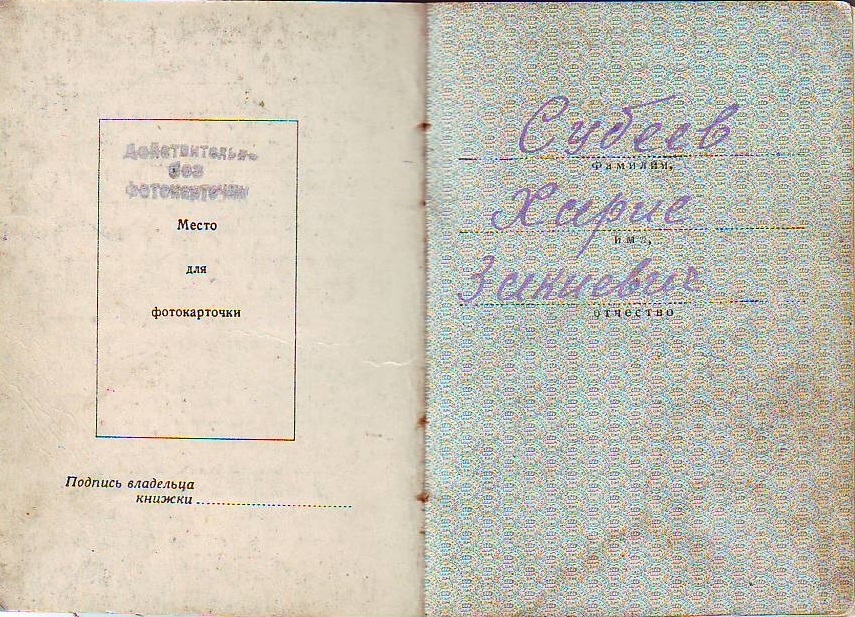 Действительно
без
фотокарточки
Место
для
фотокарточки
Подпись владельца
книжки
Субеев
фамилия,
Харис
имя,
Закиевич
отчество